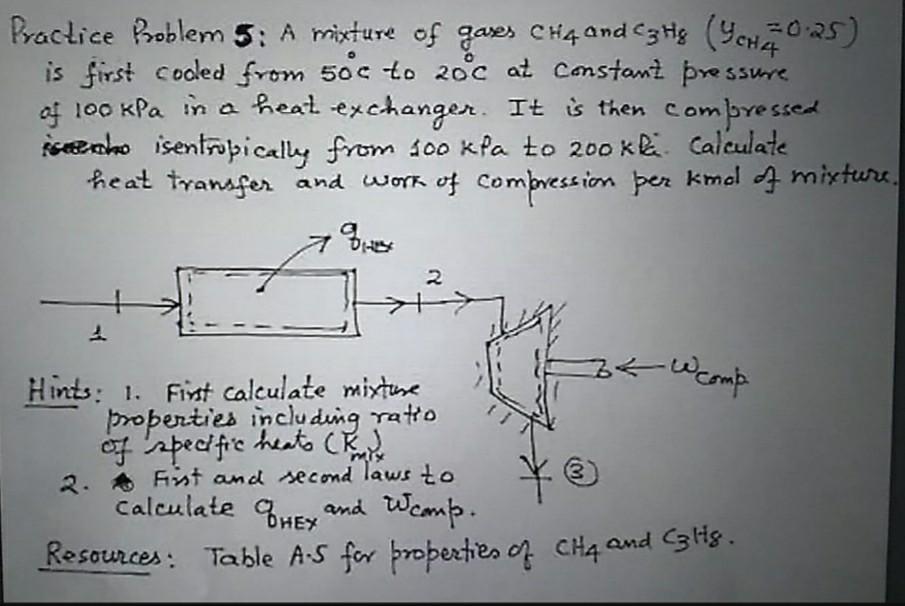 Practice Problem 5: A mixture of gases CH4 and C3H8 (yCH4 = 0.25)
is first cooled from 50°C to 20°C at constant pressure
of 100 kPa in a heat exchanger. It is then compressed
isentropically from 100 kPa to 200 kPa. Calculate
heat transfer and work of compression per kmol of mixture.
qHEX
2
1
Wcomp.
Hints: 1. First calculate mixture
properties including ratio
of specific heats (Kmix)
2. First and second laws to
calculate qHEX and Wcomp.
3
Resources: Table A.5 for properties of CH4 and C3H8.